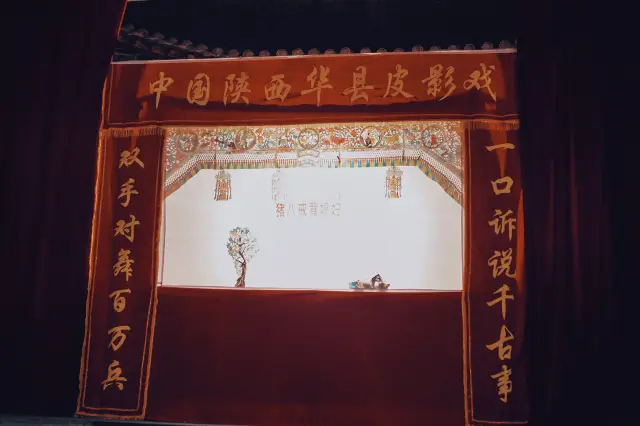 中国陕西华县皮影戏
一口诉说千古事
双手对舞百万兵
猪八戒背媳妇